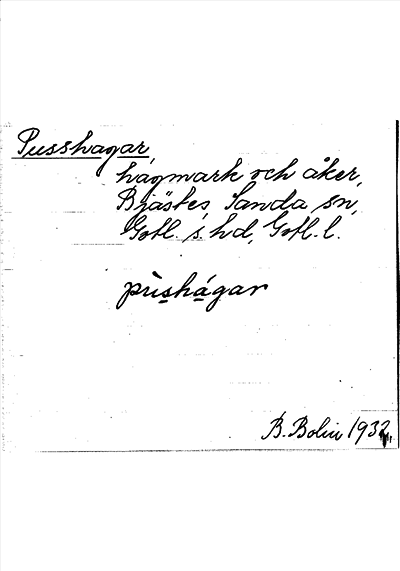 Pusshagar,
hagmark och åker,
Bjästes, Sanda sn,
Gotl. s. hd, Gotl. l.
prìs̱há̱gar
B. Bolin 1932.